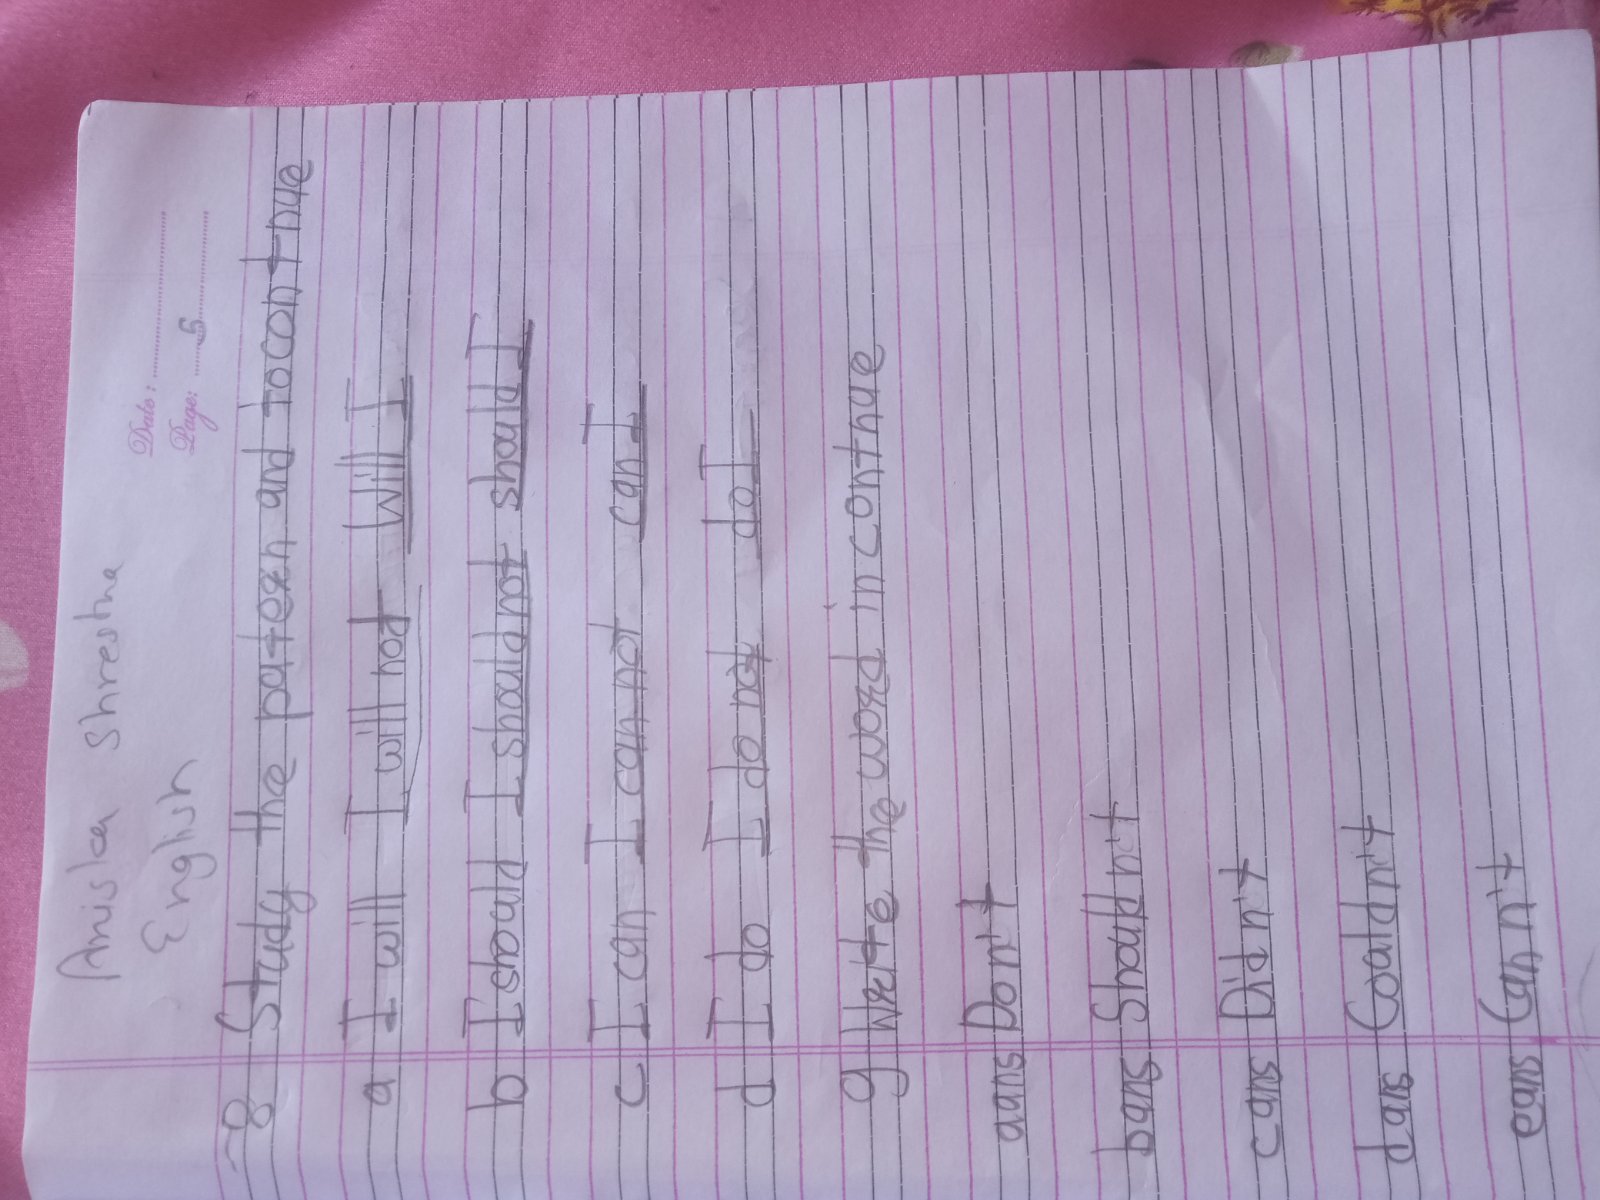 Amisha shrestha
English
Date:
Page: 5
8 Study the patern and Tocontnue
a I will I will not Will I
b I should I should not should I
c I can I can not can I
d I do I do not do I
9 Write the word in contnue
aans Don't
bans Should n't
cans Did n't
dans Could n't
eans Can n't